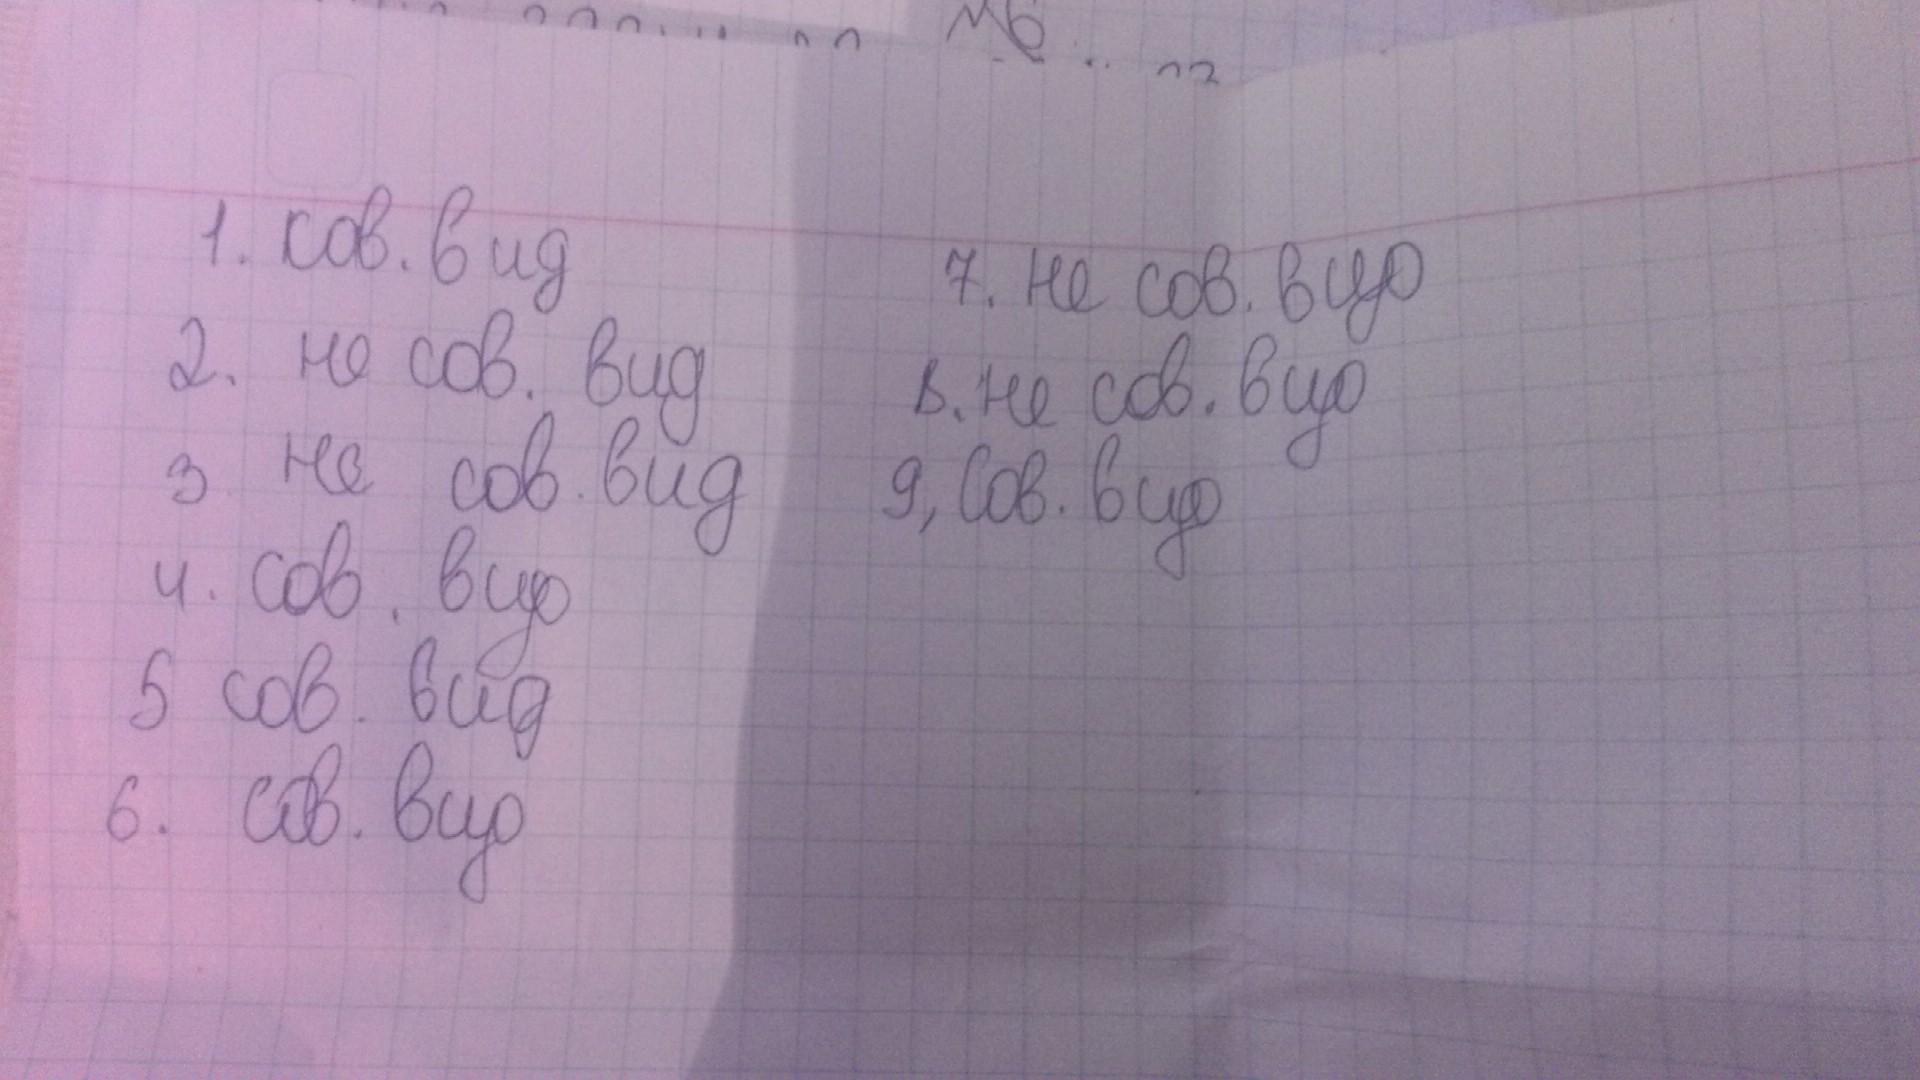 1. сов. вид
2. не сов. вид
3 не сов. вид
4. сов. вид
5 сов. вид
6. сов. вид
7. не сов. вид
8. не сов. вид
9, сов. вид